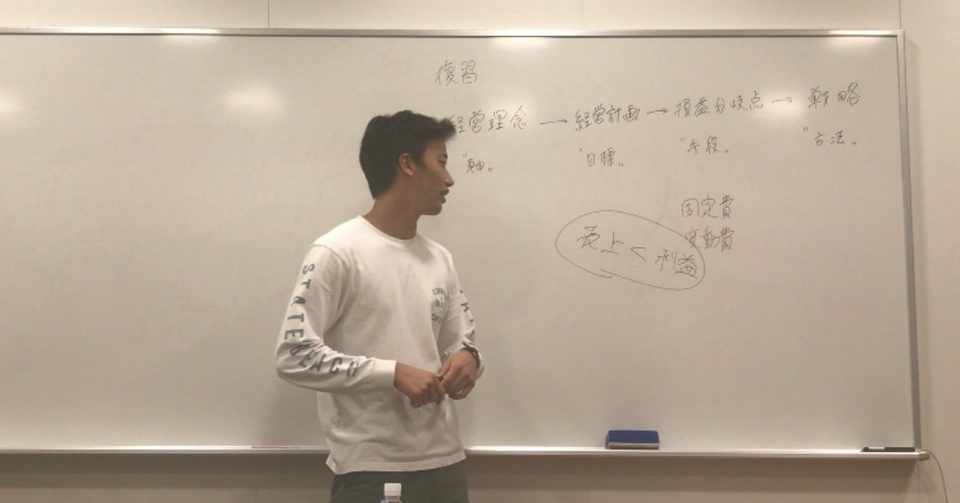 復習
経営理念 → 経営計画 → 損益分岐点 → 戦略
"軸。 "目標。 "手段。 "方法。
固定費
変動費
売上 < 利益
STATE